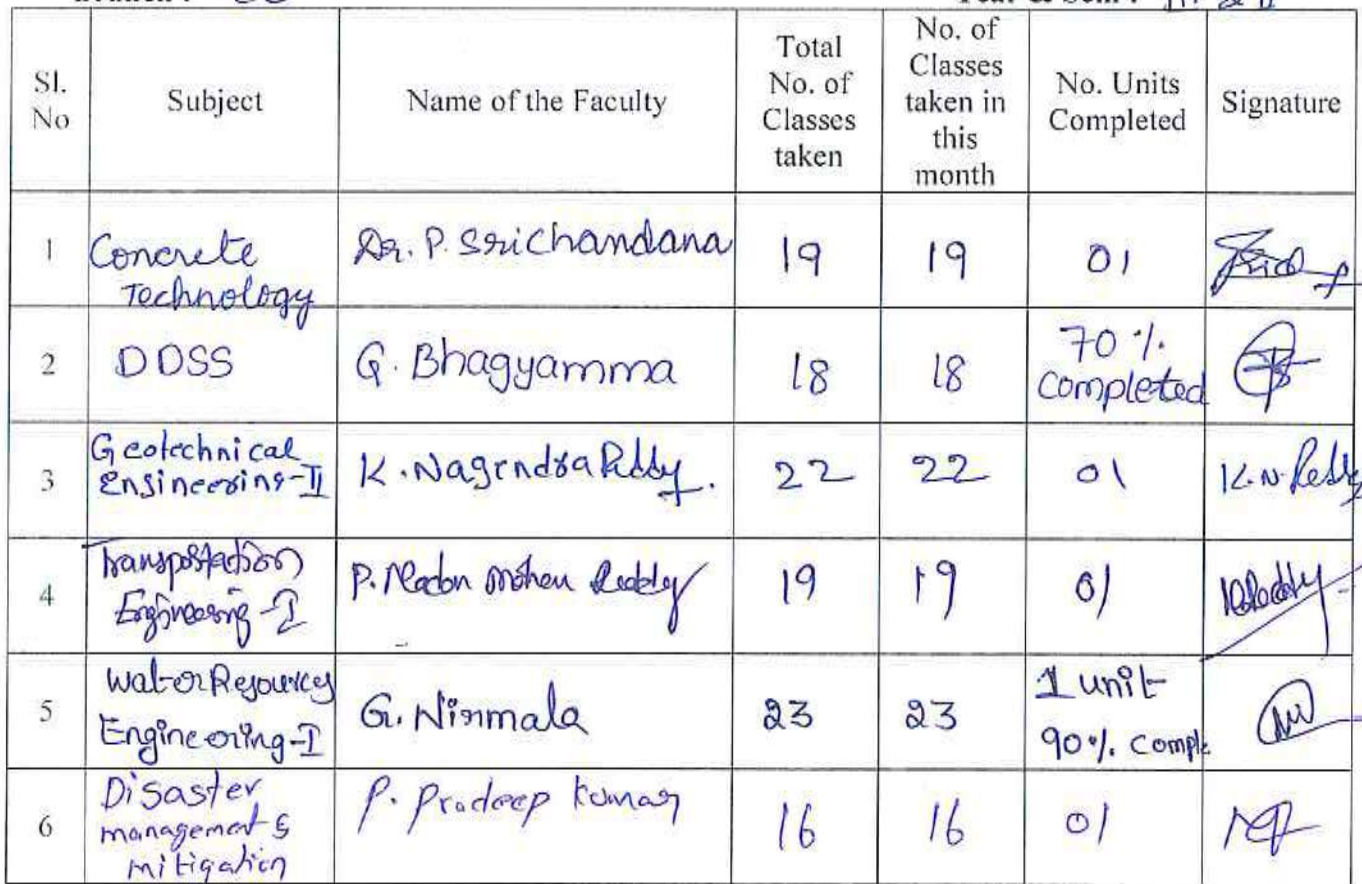 Year & Sem : III & II
Sl. No
Subject
Name of the Faculty
Total No. of Classes taken
No. of Classes taken in this month
No. Units Completed
Signature
1
Concrete
Technology
Dr. P. Srichandana
19
19
01
2
DDSS
G. Bhagyamma
18
18
70 %
Completed
3
Geotechnical
Engineering-II
K. Nagendra Reddy.
22
22
01
K.N. Reddy
4
Transportation
Engineering-I
P. Madan Mohan Reddy
19
19
01
5
Water Resources
Engineering-I
G. Nirmala
23
23
1 unit
90 %. Comple
6
Disaster
management &
mitigation
P. Pradeep Kumar
16
16
01